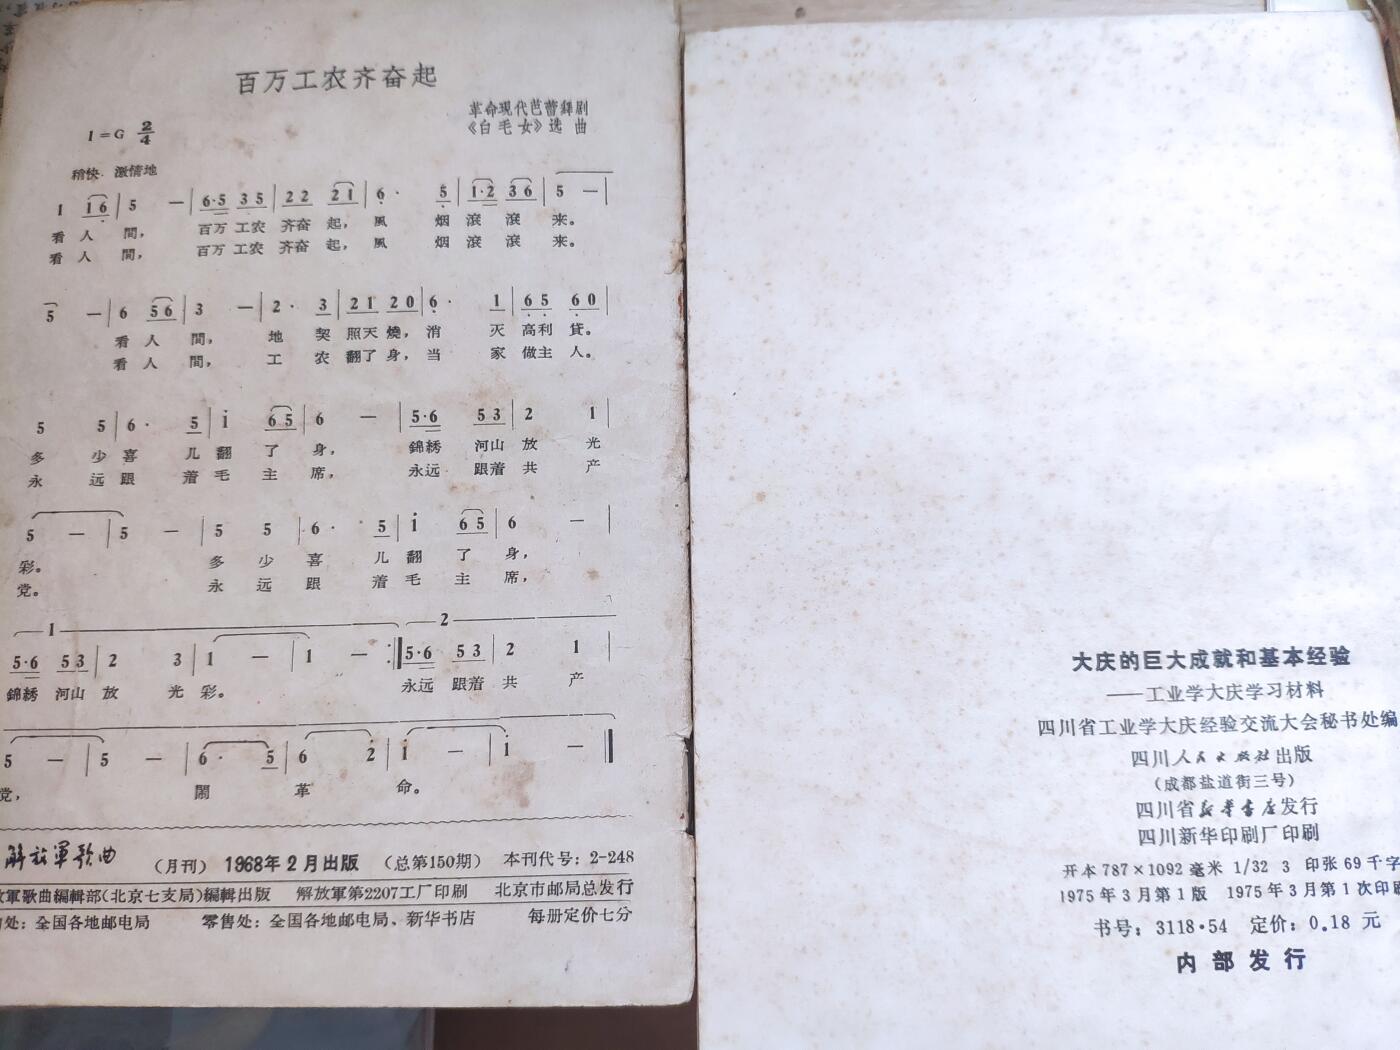 百万工农齐奋起
革命现代芭蕾舞剧
《白毛女》选曲
1=G 2/4
稍快 激情地
1 1 6 | 5 — | 6·5 3 5 | 2 2 2 1 | 6· 5 | 1·2 3 6 | 5 — |
看人間， 百万工农齐奋起，風烟滾滾来。
看人間， 百万工农齐奋起，風烟滾滾来。
5 — | 6 5 6 | 3 — | 2· 3 | 2 1 2 0 | 6· 1 | 6 5 6 0 |
看人間， 地契照天燒，消灭高利貸。
看人間， 工农翻了身，当家做主人。
5 5 | 6· 5 | i 6 5 | 6 — | 5·6 5 3 | 2 1 |
多少喜儿翻了身， 錦綉河山放光
永远跟着毛主席， 永远跟着共产
5 — | 5 — | 5 5 | 6· 5 | i 6 5 | 6 — |
彩。 多少喜儿翻了身，
党。 永远跟着毛主席，
1 2
5·6 5 3 | 2 3 | 1 — | 1 — :‖ 5·6 5 3 | 2 1 |
錦綉河山放光彩。 永远跟着共产
5 — | 5 — | 6· 5 | 6 2 | i — | i — ‖
党， 鬧革命。
解放軍歌曲 （月刊） 1968年2月出版 （总第150期） 本刊代号：2-248
放軍歌曲編輯部(北京七支局)編輯出版 解放軍第2207工厂印刷 北京市邮局总发行
处：全国各地邮电局 零售处：全国各地邮电局、新华书店 每册定价七分
大庆的巨大成就和基本经验
——工业学大庆学习材料
四川省工业学大庆经验交流大会秘书处编
四川人民出版社出版
(成都盐道街三号)
四川省新华书店发行
四川新华印刷厂印刷
开本787×1092毫米 1/32 3 印张69千字
1975年3月第1版 1975年3月第1次印刷
书号：3118·54 定价：0.18元
内部发行